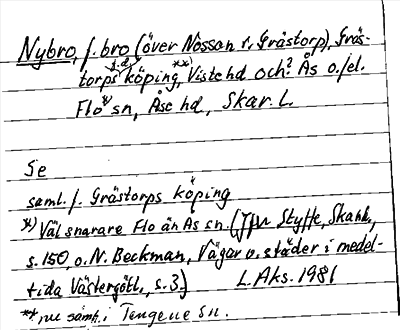 Nybro, f. bro (över Nossan i Grästorp), Gräs-
torps f.d. köping, **) Viste hd och? Ås o./el.
Flo *) sn, Åse hd, Skar. L.
Se
saml. f. Grästorps köping
*) Väl snarare Flo än Ås sn (Jfr Styffe, Skand.,
s. 150, o. N. Beckman, Vägar o. städer i medel-
tida Västergötl., s. 3.) L. Aks. 1981
** nu saml. i Tengene sn.